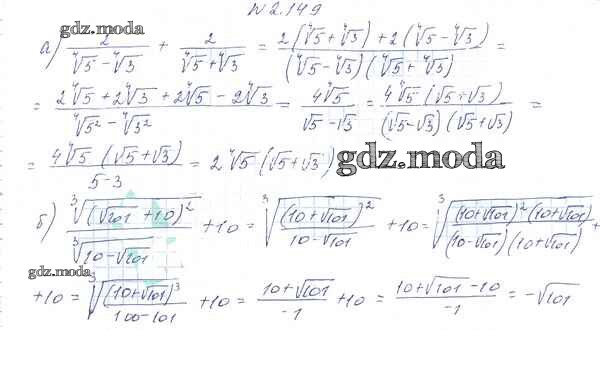 N 2.149
gdz.moda
а) 2/(⁴√5 − ⁴√3) + 2/(⁴√5 + ⁴√3) = (2(⁴√5 + ⁴√3) + 2(⁴√5 − ⁴√3))/((⁴√5 − ⁴√3)(⁴√5 + ⁴√3)) =
= (2⁴√5 + 2⁴√3 + 2⁴√5 − 2⁴√3)/(⁴√5² − ⁴√3²) = 4⁴√5/(√5 − √3) = 4⁴√5(√5 + √3)/((√5 − √3)(√5 + √3)) =
= 4⁴√5(√5 + √3)/(5 − 3) = 2⁴√5(√5 + √3)
gdz.moda
б) ³√((√101 + 10)²)/³√(10 − √101) + 10 = ³√((10 + √101)²/(10 − √101)) + 10 = ³√((10 + √101)²(10 + √101)/((10 − √101)(10 + √101))) +
gdz.moda
+ 10 = ³√((10 + √101)³/(100 − 101)) + 10 = (10 + √101)/−1 + 10 = (10 + √101 − 10)/−1 = −√101